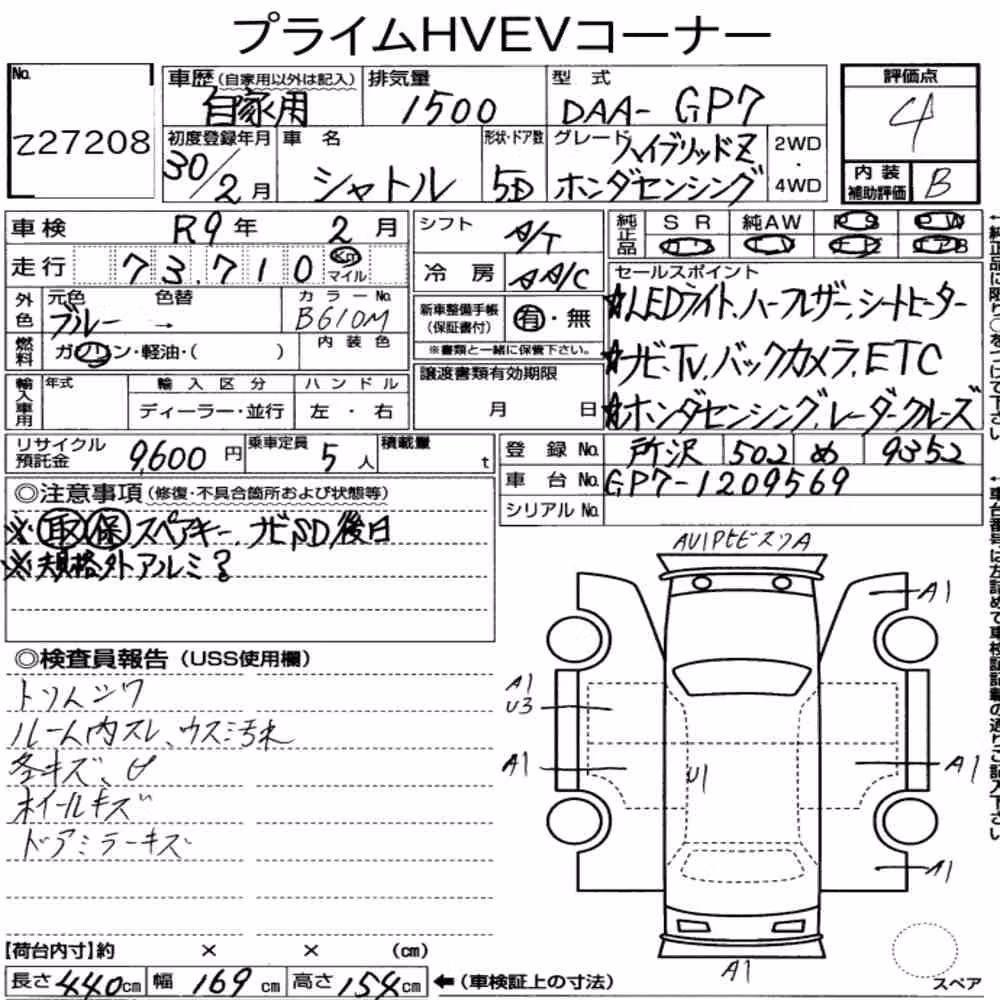 プライムHVEVコーナー
No.
Z27208
車歴(自家用以外は記入)
自家用
排気量
1500
型式
DAA- GP7
評価点
4
初度登録年月
30/2月
車名
シャトル
形状・ドア数
5D
グレード
ハイブリッドZ
ホンダセンシング
2WD
・
4WD
内装
補助評価
B
車検 R9年 2月
走行 73,710 Km マイル
シフト A/T
冷房 AA/C
純正品 SR 純AW PS PW
外色
元色 色替
ブルー →
カラーNo.
B610M
燃料
ガソリン・軽油・( )
内装色
新車整備手帳
(保証書付)
有・無
※書類と一緒に保管下さい。
セールスポイント
☆LEDライト、ハーフレザー、シートヒーター
☆ナビ、TV、バックカメラ、ETC
☆ホンダセンシング、レーダークルーズ
輸入車用
年式
輸入区分
ディーラー・並行
ハンドル
左・右
譲渡書類有効期限
月 日
リサイクル
預託金
9,600円
乗車定員 5人
積載量 t
登録No. 所沢 502 め 9352
車台No. GP7-1209569
シリアルNo.
◎注意事項(修復・不具合箇所および状態等)
※取保 スペアキー、ナビSD後日
※規格外アルミ?
◎検査員報告(USS使用欄)
トリムシワ
ルーム内スレ、ウス汚れ
各キズ、U
ホイールキズ
ドアミラーキズ
AU1PヒビスリA
A1
A1
U3
A1
U1
A1
A1
A1
スペア
【荷台内寸】約 × × (cm)
長さ 440cm 幅 169cm 高さ 154cm ←(車検証上の寸法)